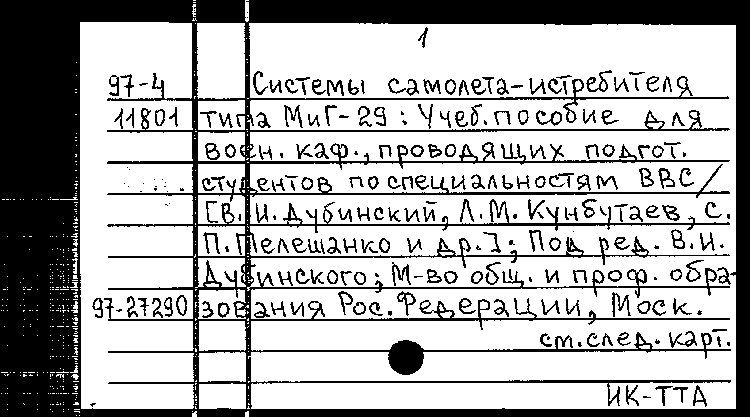 1
97-4 Системы самолета-истребителя
11801 типа МиГ-29 : Учеб. пособие для
воен. каф., проводящих подгот.
студентов по специальностям ВВС /
[В. И. Дубинский, Л. М. Кунбутаев, С.
П. Пелешанко и др.]; Под ред. В. И.
Дубинского; М-во общ. и проф. обра-
97-27290 зования Рос. Федерации, Моск.
см. след. карт.
ИК-ТТА